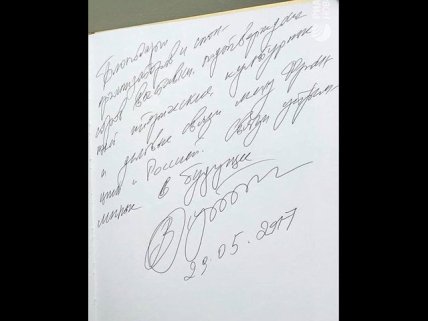 Благодарю
организаторов и спон-
соров выставки, подтверждаю-
щей исторические, культурные
и деловые связи между Фран-
цией и Россией. Связи устрем-
в будущее
29.05.2017
РИА